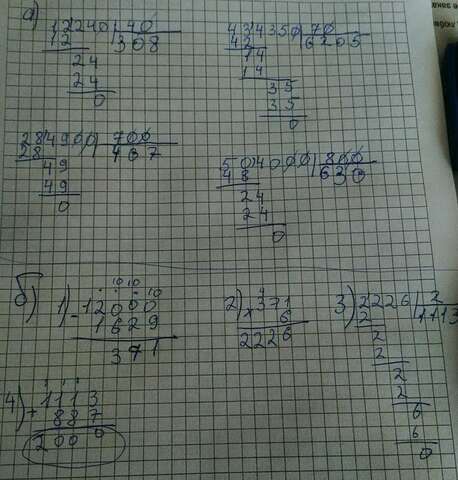 а) 12240 | 40
12 | 308
24
24
0
434350 | 70
42 | 6205
14
14
35
35
0
284900 | 700
28 | 407
49
49
0
504000 | 800
48 | 630
24
24
0
б) 1) 10 10 10
- 12000
1629
371
2) 4
× 371
6
2226
3) 2226 | 2
2 | 1113
2
2
2
2
6
6
0
4) 1 1 1
+ 1113
887
2000